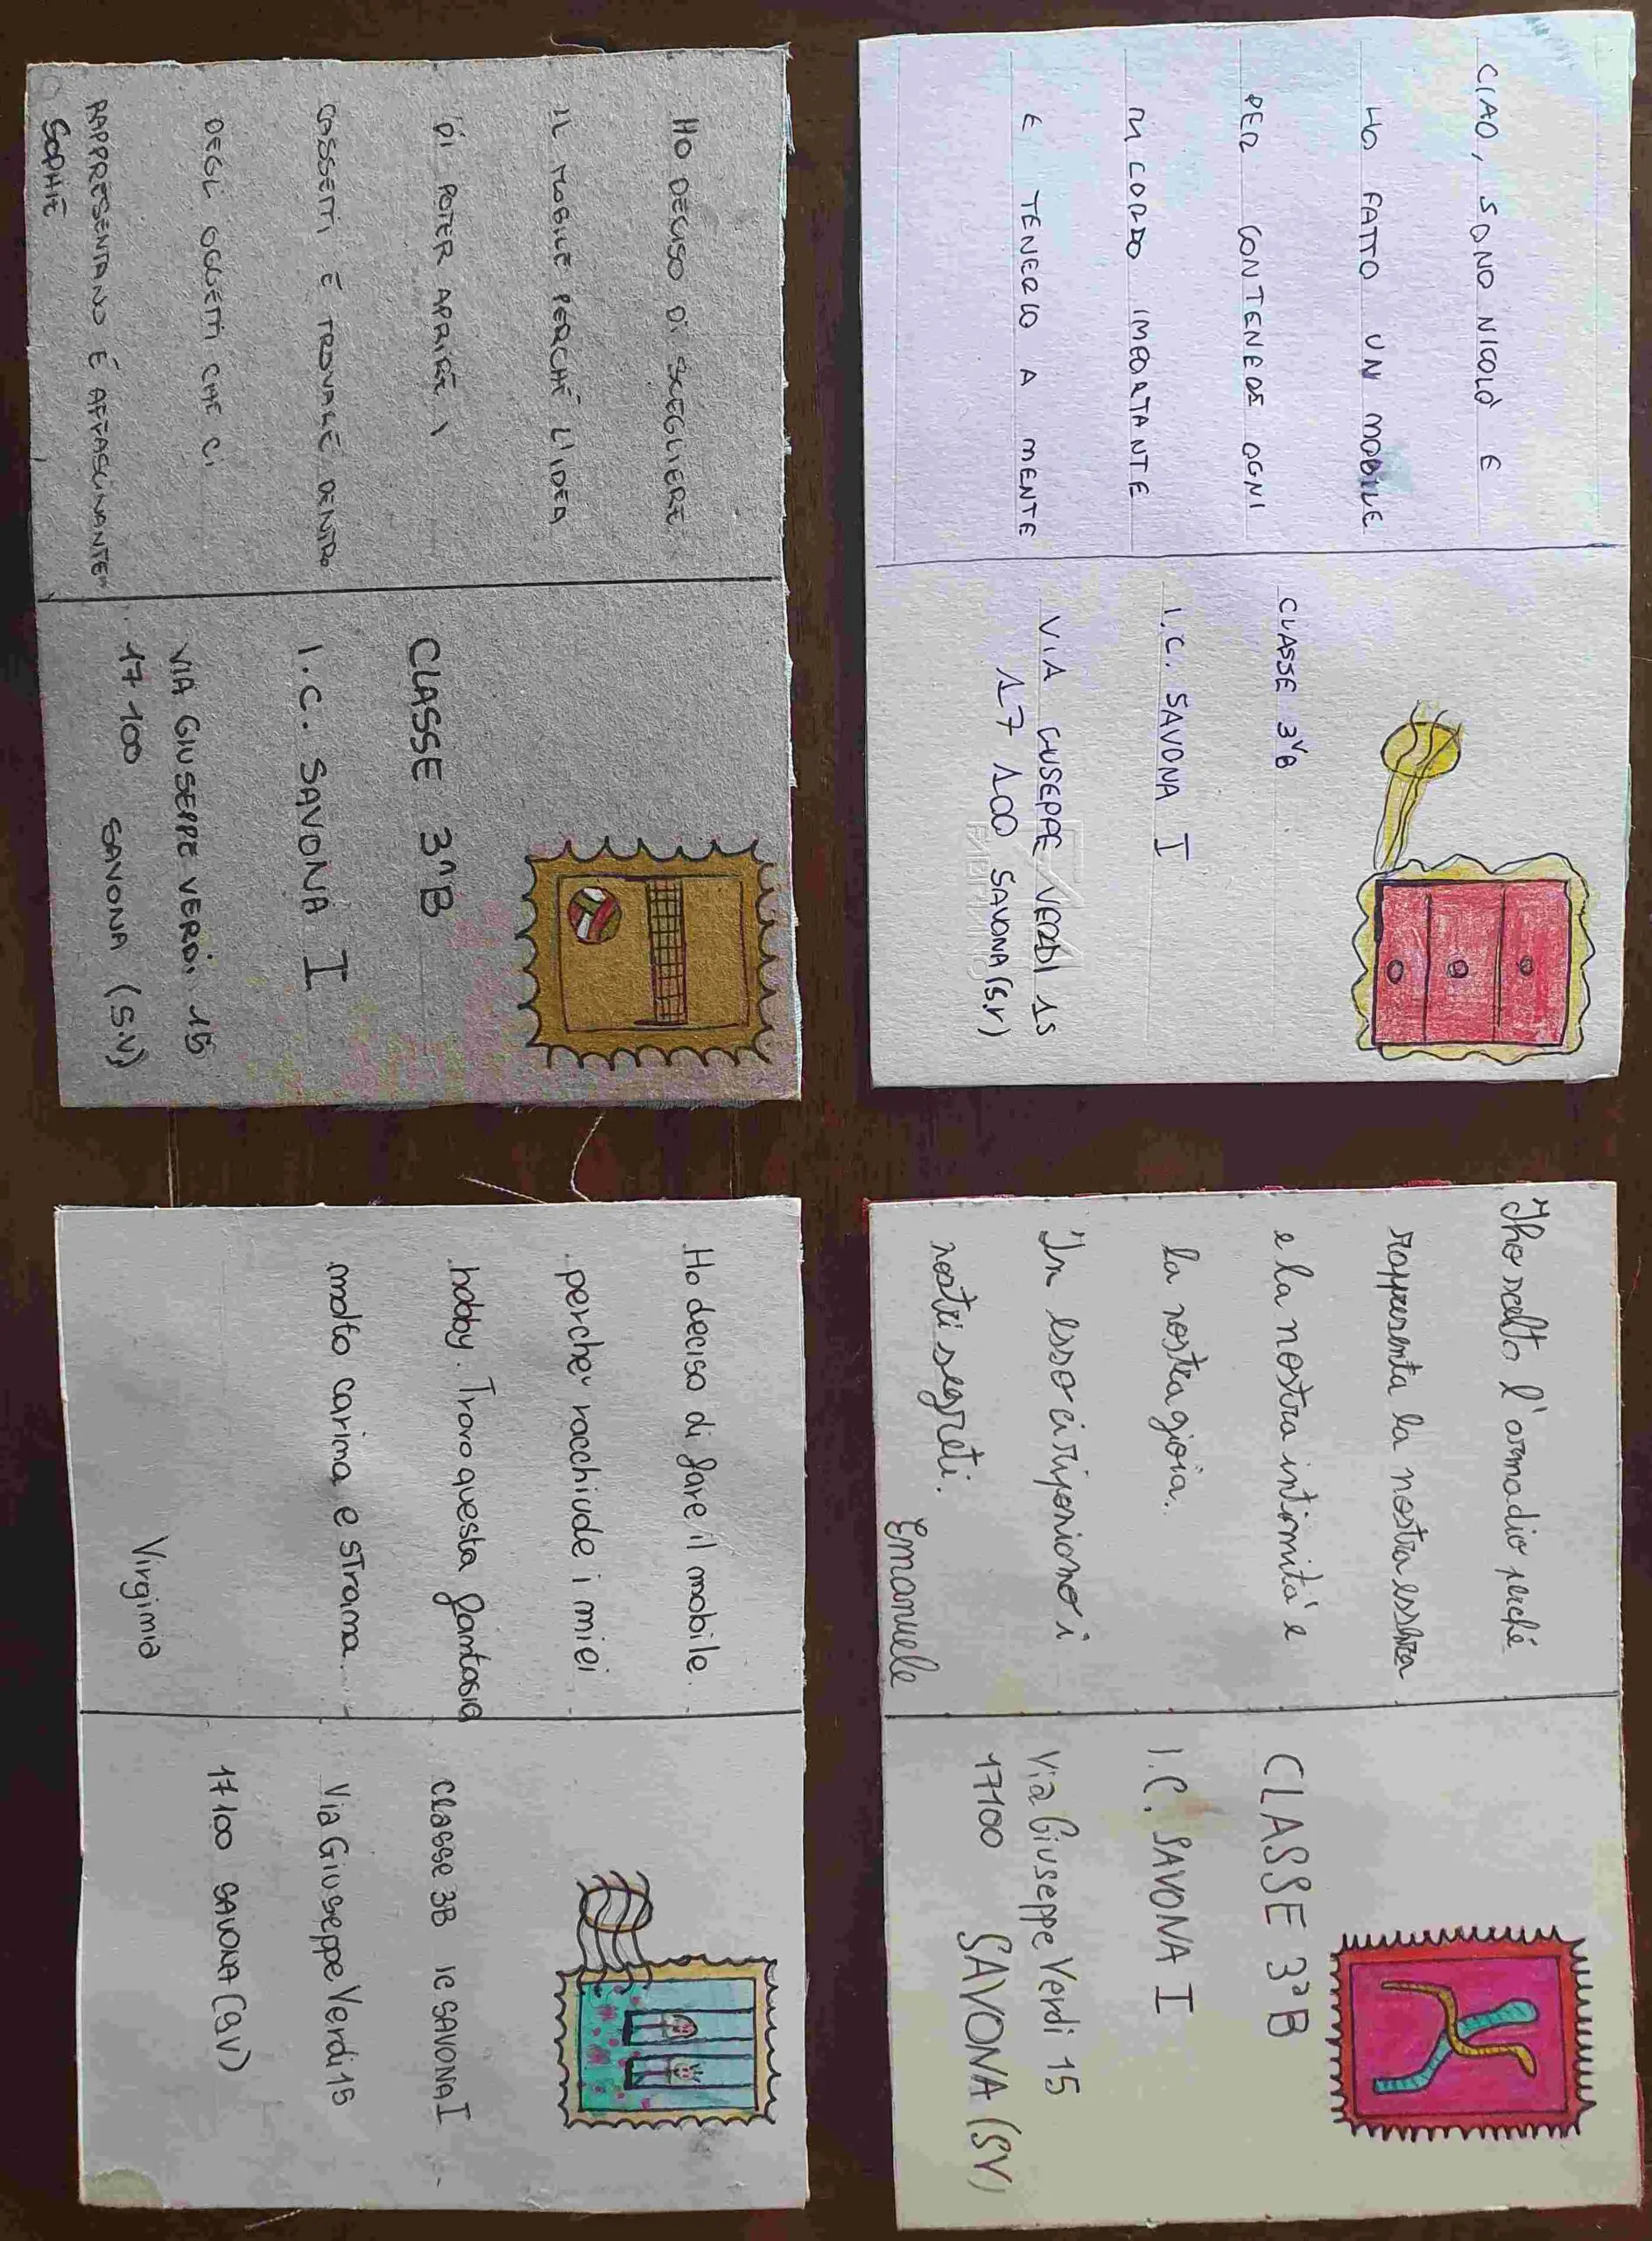 CIAO, SONO NICOLÒ E
HO FATTO UN MOBILE
PER CONTENERE OGNI
RICORDO IMPORTANTE
E TENERLO A MENTE
CLASSE 3^B
I.C. SAVONA I
VIA GUSEPPE VERDI 15
17100 SAVONA (S.V)
Ho scelto l'armadio perché
rappresenta la nostra
e la nostra intimità e
la nostra gioia.
In esso ci riponiamo i
nostri segreti.
Emanuele
CLASSE 3ªB
I.C. SAVONA I
Via Giuseppe Verdi 15
17100 SAVONA (SV)
HO DECISO DI SCEGLIERE
IL MOBILE PERCHÉ L'IDEA
DI POTER APRIRE I
CASSETTI E TROVARE DENTRO
DEGL OGGETTI CHE CI
RAPPRESENTANO É AFFASCINANTE"
SOPHIE
CLASSE 3^B
I.C. SAVONA I
VIA GIUSEPPE VERDI 15
17100 SAVONA (S.V)
Ho deciso di fare il mobile
perche' racchiude i miei
hobby. Trovo questa fantasia
molto carina e strana.
Virginia
Classe 3B IC SAVONA I
Via Giuseppe Verdi 15
17100 SAVONA (SV)